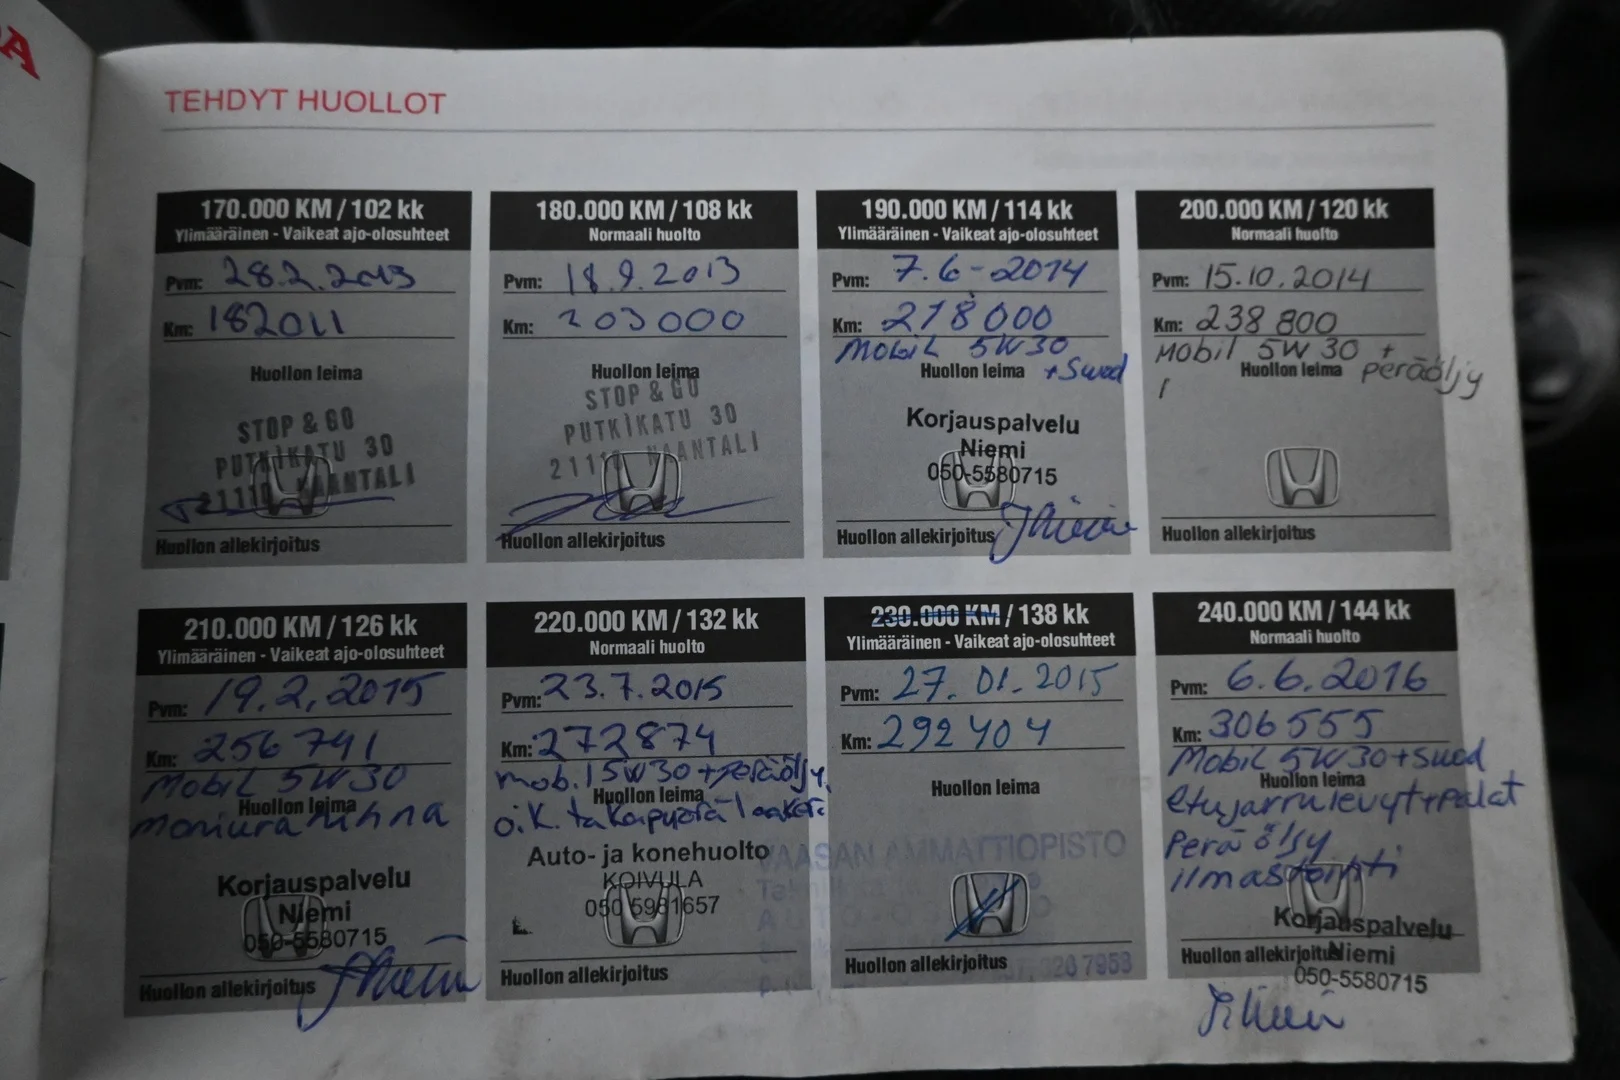 TEHDYT HUOLLOT
170.000 KM / 102 kk
Ylimääräinen - Vaikeat ajo-olosuhteet
Pvm: 28.2.2013
Km: 182011
Huollon leima
STOP & GO
PUTKIKATU 30
21110 NAANTALI
Huollon allekirjoitus
180.000 KM / 108 kk
Normaali huolto
Pvm: 18.9.2013
Km: 203000
Huollon leima
STOP & GO
PUTKIKATU 30
21110 NAANTALI
Huollon allekirjoitus
190.000 KM / 114 kk
Ylimääräinen - Vaikeat ajo-olosuhteet
Pvm: 7.6-2014
Km: 218000
Mobil 5W30
Huollon leima +Suod
Korjauspalvelu
Niemi
050-5580715
Huollon allekirjoitus JNiemi
200.000 KM / 120 kk
Normaali huolto
Pvm: 15.10.2014
Km: 238 800
Mobil 5W30 +
Huollon leima peräöljy
Huollon allekirjoitus
210.000 KM / 126 kk
Ylimääräinen - Vaikeat ajo-olosuhteet
Pvm: 19.2.2015
Km: 256741
Mobil 5W30
Huollon leima
moniurahihna
Korjauspalvelu
Niemi
050-5580715
Huollon allekirjoitus JNiemi
220.000 KM / 132 kk
Normaali huolto
Pvm: 23.7.2015
Km: 272874
mob.15W30 +peräöljy
Huollon leima
o.k. takapyörä laakeri
Auto- ja konehuolto
KOIVULA
050 5981657
Huollon allekirjoitus
230.000 KM / 138 kk
Ylimääräinen - Vaikeat ajo-olosuhteet
Pvm: 27.01.2015
Km: 292404
Huollon leima
VAASAN AMMATTIOPISTO
Huollon allekirjoitus
240.000 KM / 144 kk
Normaali huolto
Pvm: 6.6.2016
Km: 306555
Mobil 5W30+Suod
Huollon leima
etujarrulevyt+palat
Perä öljy
ilmastointi
Korjauspalvelu
Niemi
Huollon allekirjoitus
050-5580715
JNiemi